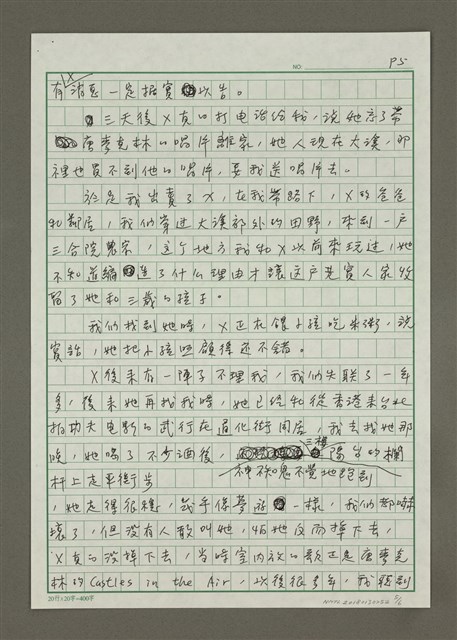 NO.
P5
有消息一定据實以告。
三天後X真的打电话给我，説她忘了带
唐麥克林的唱片離家，她人現在大溪，那
裡也買不到他的唱片，要我送唱片去。
於是我出賣了X，在我帶路下，X的爸爸
和鄰居，我们率進大溪郊外的田野，來到一戶
三合院農家，这个地方我和X以前來玩过，她
不知道編造了什么理由才讓这戶老實人家收
留了她和三歲的孩子。
我们找到她時，X正在餵小孩吃朱粥，説
實話，她把小孩照顧得还不錯。
X後來有一陣子不理我，我们失联了一年
多，後來她再找我時，她已經和從香港來台北
拍功夫电影的武行在通化街同居，我去找她那
晚，她喝了不少酒後，三樓陽台的欄
神不知鬼不覺地跑到
杆上走平衡步
，她走得很穩，幾乎像夢游一樣，我们都嚇
壞了，但没有人敢叫她，怕她反而掉下去，
X真的没掉下去，当時室内放的歌正是唐麥克
林的Castles in the Air，以後很多年，我聽到
20行×20字=400字